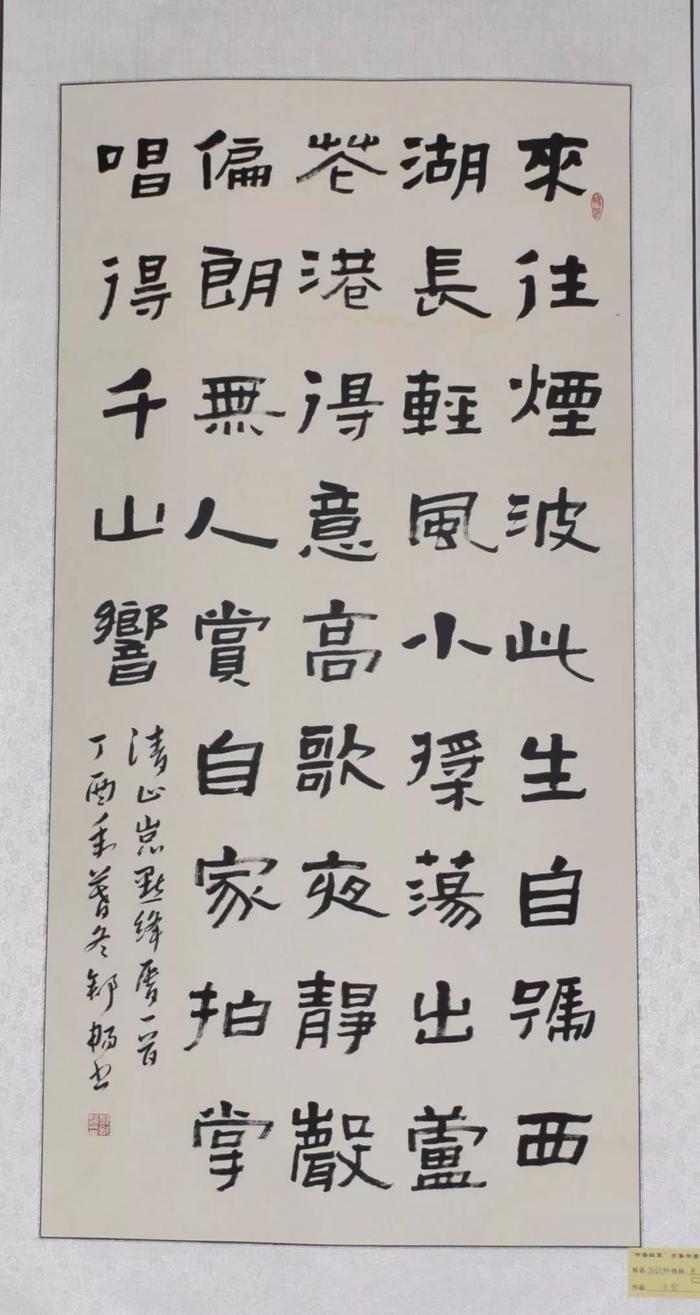 來往煙波此生自號西
湖長輕風小槳蕩出蘆
花港得意高歌夜靜聲
偏朗無人賞自家拍掌
唱得千山響
清正嵒點絳唇一首
丁酉年暮冬鄒暢書